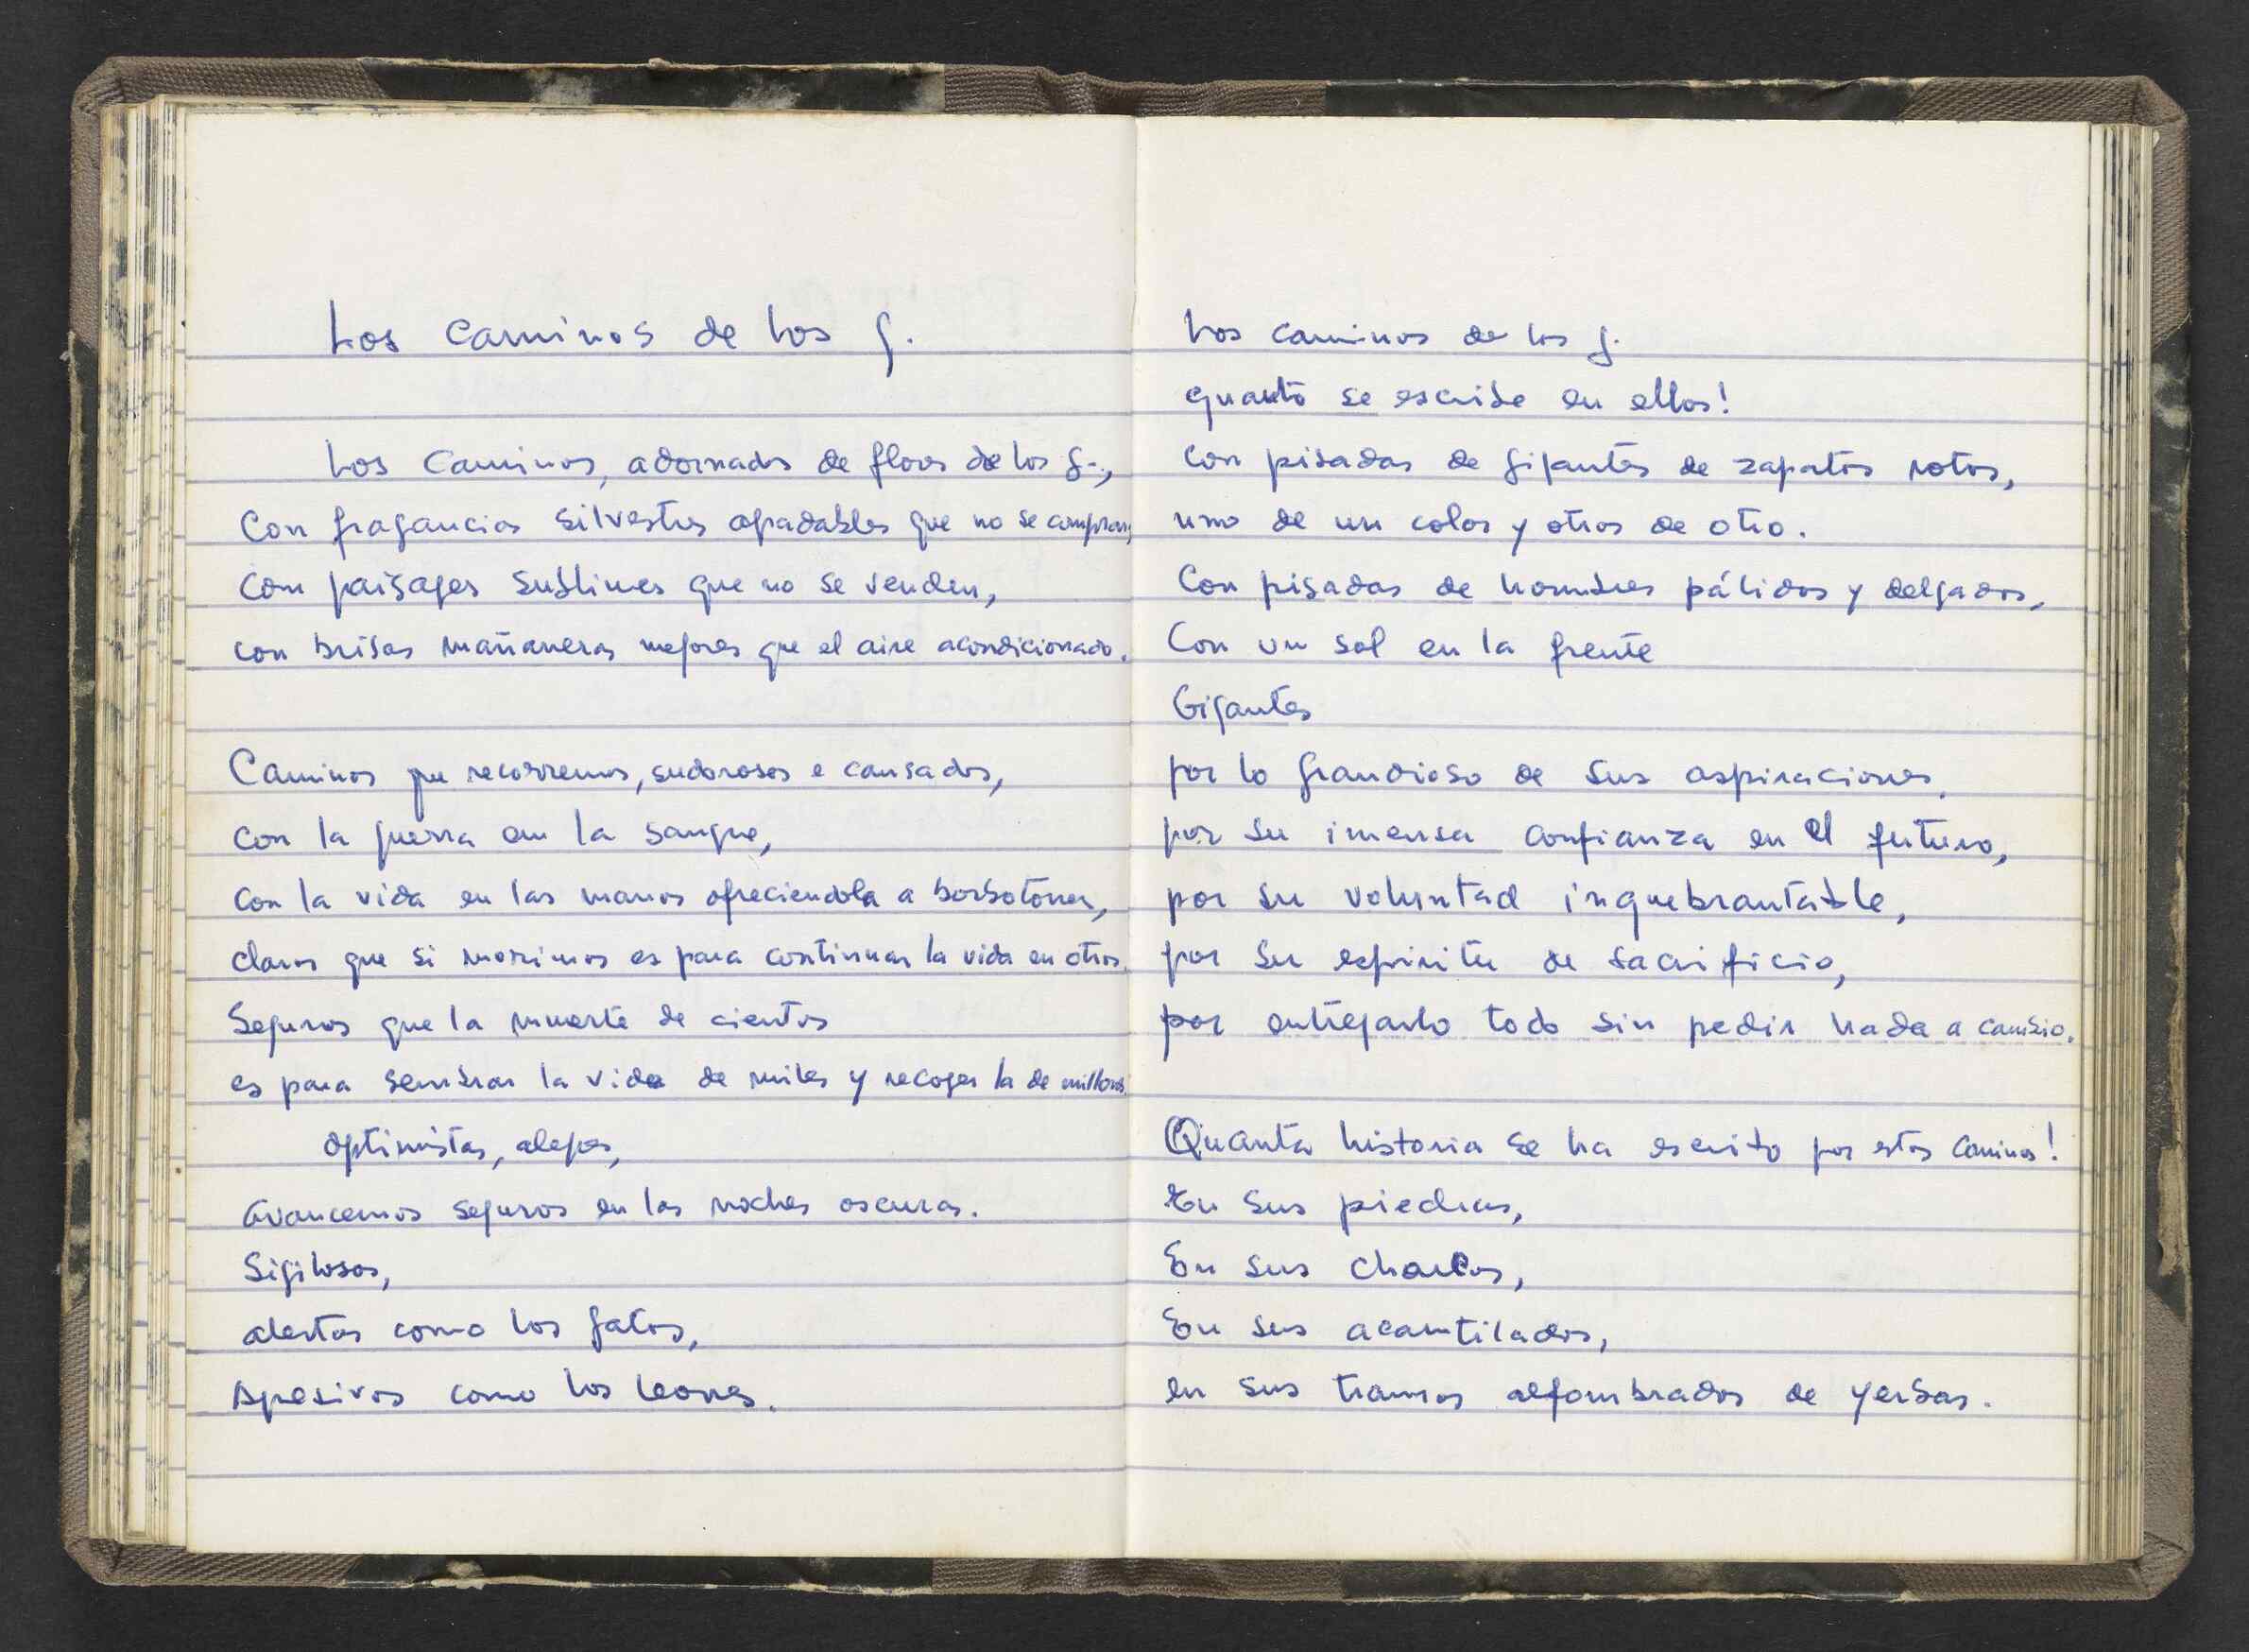 Los Caminos de los g.
Los Caminos, adornados de flores de los g.,
Con fragancias silvestres agradables que no se compran,
Con paisages sublimes que no se venden,
con brisas mañaneras mejores que el aire acondicionado.
Caminos que recorremos, sudorosos e cansados,
con la guerra em la sangre,
con la vida en las manos ofreciendola a borbotones,
claros que si morimos es para continuar la vida en otros,
Seguros que la muerte de cientos
es para sembrar la vida de miles y recoger la de millones.
Optimistas, alegres,
avancemos seguros en las noches oscuras.
Sigilosos,
alertas como los gatos,
Agresivos como los leones.
Los caminos de los g.
quanto se escribe en ellos!
Con pisadas de gigantes de zapatos rotos,
uno de un color y otros de otro.
Con pisadas de hombres pálidos y delgados,
Con un sol en la frente
Gigantes
por lo grandioso de sus aspiraciones,
por su imensa confianza en el futuro,
por su voluntad inquebrantable,
por su espiritu de sacrificio,
por entregarlo todo sin pedir nada a cambio.
Quanta historia se ha escrito por estos caminos!
En sus piedras,
En sus charcos,
En sus acantilados,
en sus tramos alfombrados de yerbas.